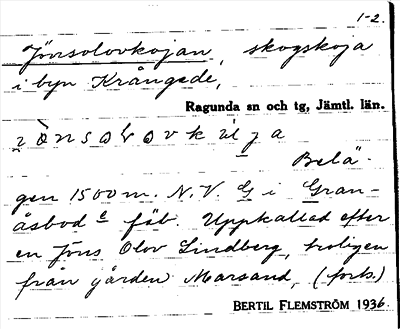 1-2.
Jönsolovkojan, skogskoja
i byn Krångede,
Ragunda sn och tg, Jämtl. län.
Belä-
gen 1500 m. N.V. G i Gran-
åsbod e fäb. Uppkallad efter
en Jöns Olov Lindberg, troligen
från gården Marsand, (forts.)
BERTIL FLEMSTRÖM 1936.